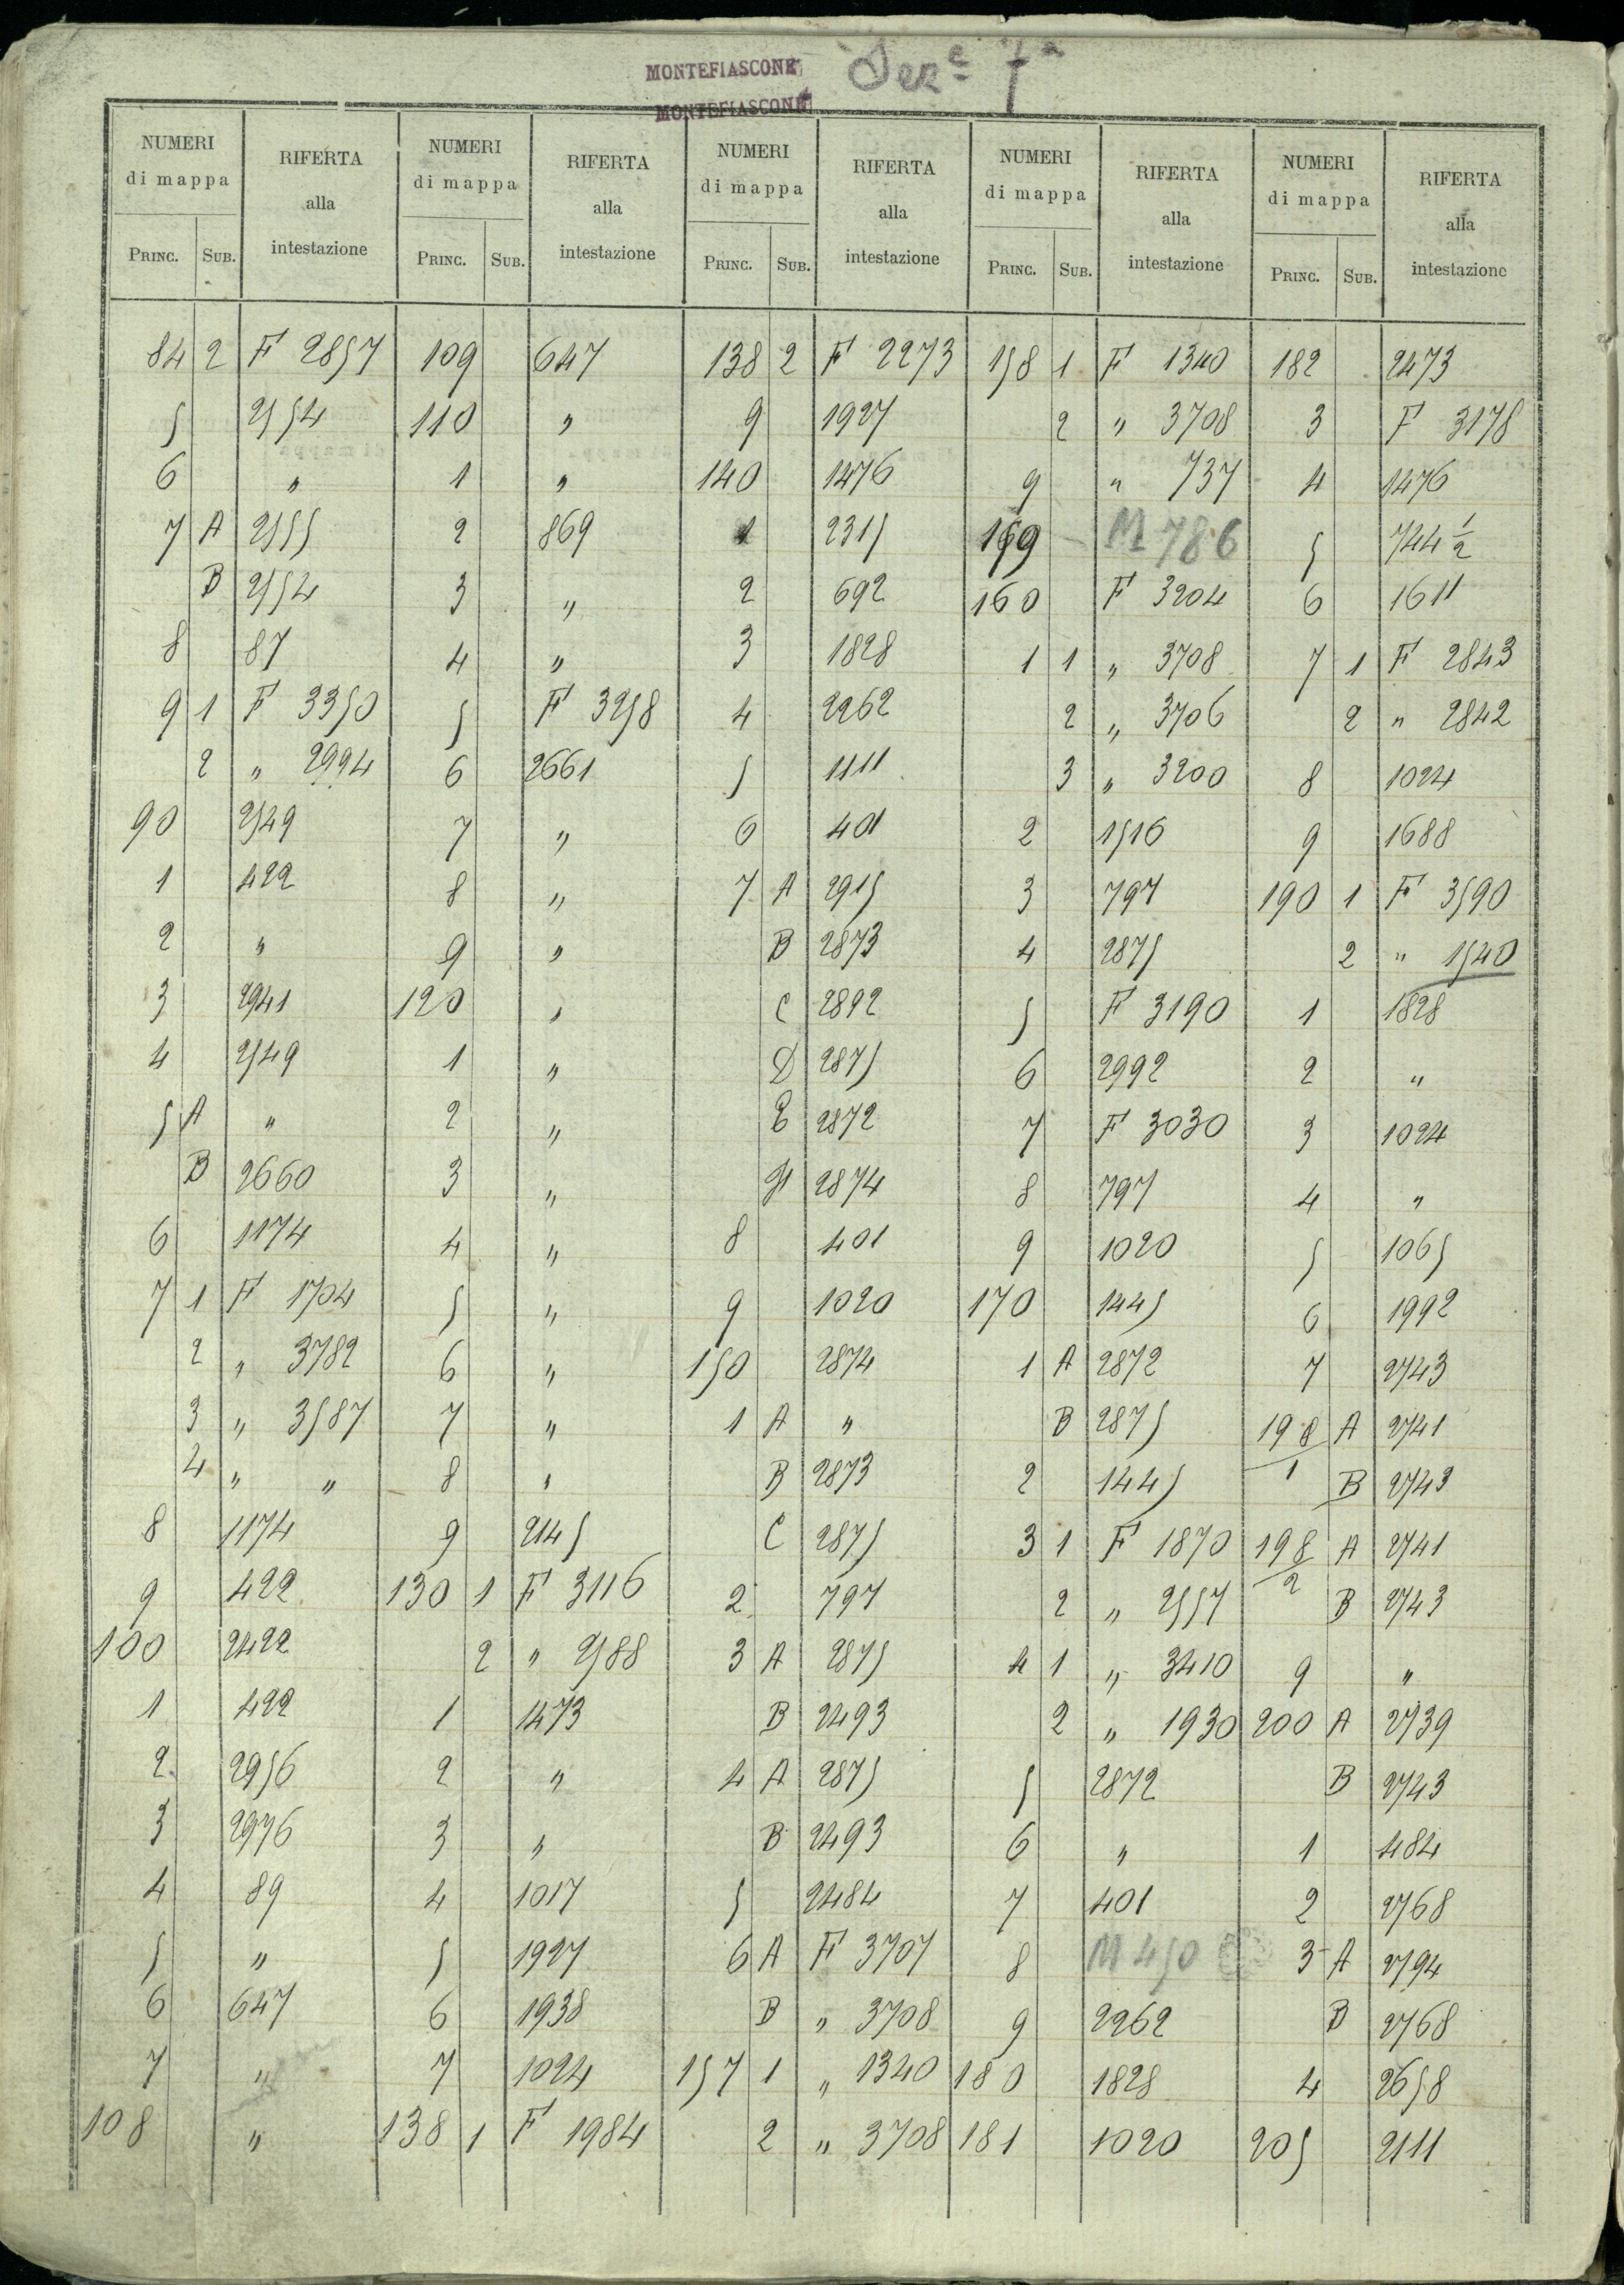 MONTEFIASCONE Sez^e 7^a
MONTEFIASCONE
NUMERI di mappa RIFERTA alla intestazione NUMERI di mappa RIFERTA alla intestazione NUMERI di mappa RIFERTA alla intestazione NUMERI di mappa RIFERTA alla intestazione NUMERI di mappa RIFERTA alla intestazione
PRINC. SUB. PRINC. SUB. PRINC. SUB. PRINC. SUB. PRINC. SUB.
84 2 F 2857 109 647 138 2 F 2273 158 1 F 1340 182 2473
5 2554 110 " 9 1927 2 " 3708 3 F 3178
6 " 1 " 140 1476 9 " 737 4 1476
7 A 2555 2 869 1 2315 159 M 786 5 744 1/2
B 2554 3 " 2 692 160 F 3204 6 1611
8 87 4 " 3 1828 1 1 " 3708 7 1 F 2843
9 1 F 3350 5 F 3258 4 2262 2 " 3706 2 " 2842
2 " 2994 6 2661 5 1111 3 " 3200 8 1024
90 2549 7 " 6 401 2 1516 9 1688
1 422 8 " 7 A 2915 3 797 190 1 F 3590
2 " 9 " B 2873 4 2875 2 " 1540
3 2941 120 " C 2892 5 F 3190 1 1828
4 2549 1 " D 2875 6 2992 2 "
5 A " 2 " E 2872 7 F 3030 3 1024
B 2660 3 " F 2874 8 797 4 "
6 1174 4 " 8 401 9 1020 5 1065
7 1 F 1704 5 " 9 1020 170 1445 6 1992
2 " 3782 6 " 150 2874 1 A 2872 7 2743
3 " 3587 7 " 1 A " B 2875 198/1 A 2741
4 " " 8 " B 2873 2 1445 B 2743
8 1174 9 2145 C 2875 3 1 F 1870 198/2 A 2741
9 422 130 1 F 3116 2 797 2 " 2557 B 2743
100 2422 2 " 2588 3 A 2875 4 1 " 3410 9 "
1 422 1 1473 B 2493 2 " 1930 200 A 2739
2 2956 2 " 4 A 2875 5 2872 B 2743
3 2976 3 " B 2493 6 " 1 484
4 89 4 1017 5 2484 7 401 2 2768
5 " 5 1927 6 A F 3707 8 M 450 3 A 2794
6 647 6 1938 B " 3708 9 2262 B 2768
7 " 7 1024 157 1 " 1340 180 1828 4 2658
108 " 138 1 F 1984 2 " 3708 181 1020 205 2111